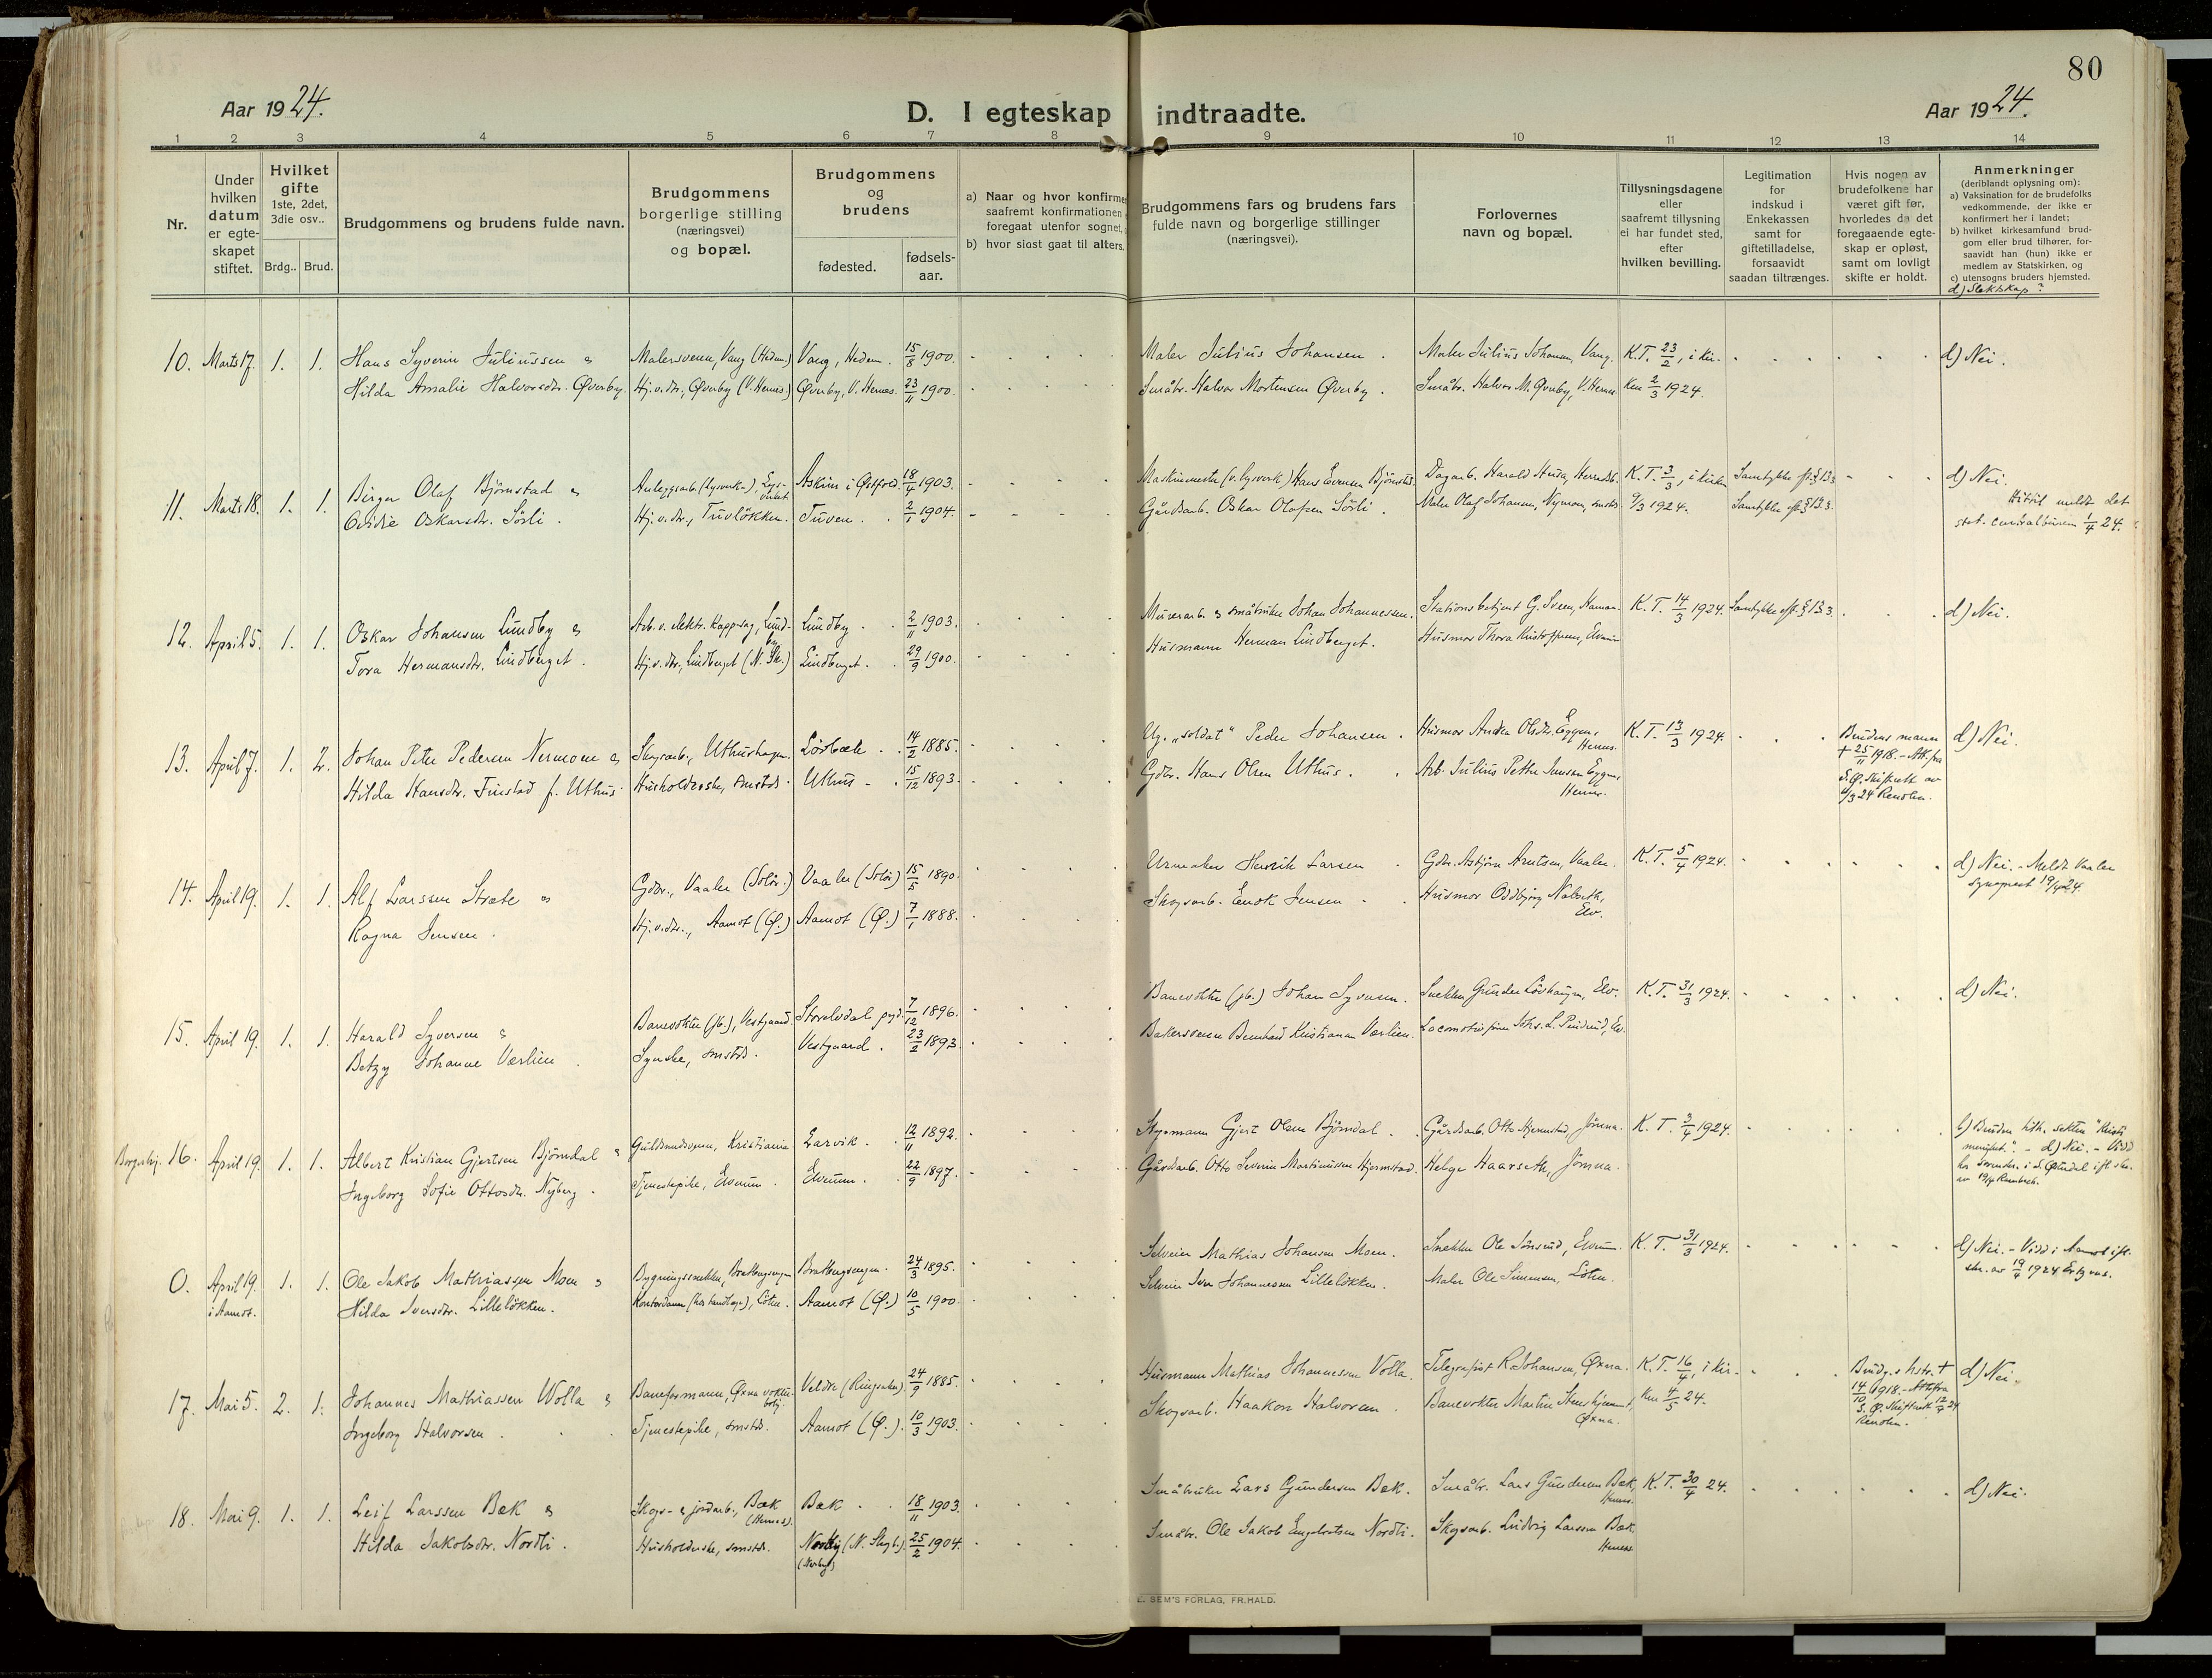 80
Aar 1924.
D. I egteskap indtraadte.
Aar 1924.
1 2 3 4 5 6 7 8 9 10 11 12 13 14
Nr.
Under hvilken datum er egteskapet stiftet.
Hvilket gifte 1ste, 2det, 3die osv..
Brdg.. Brud.
Brudgommens og brudens fulde navn.
Brudgommens borgerlige stilling (næringsvei) og bopæl.
Brudgommens og brudens
fødested.
fødsels-aar.
a) Naar og hvor konfirme
saafremt konfirmationen
foregaat utenfor sognet,
b) hvor sidst gaat til alters.
Brudgommens fars og brudens fars
fulde navn og borgerlige stillinger
(næringsvei).
Forlovernes
navn og bopæl.
Tillysningsdagene
eller
saafremt tillysning
ei har fundet sted,
efter
hvilken bevilling.
Legitimation
for
indskud i
Enkekassen
samt for
giftetilladelse,
forsaavidt
saadan tiltrænges.
Hvis nogen av
brudefolkene har
været gift før,
hvorledes da det
foregaaende egte-
skap er opløst,
samt om lovligt
skifte er holdt.
Anmerkninger
(deriblandt oplysning om):
a) Vaksination for de brudefolks
vedkommende, der ikke er
konfirmert her i landet;
b) hvilket kirkesamfund brud-
gom eller brud tilhører, for-
saavidt han (hun) ikke er
medlem av Statskirken, og
c) utensogns bruders hjemsted.
d) Slektskap?
10. Marts 17. 1. 1. Hans Syverin Juliussen & Malersvenn, Vang (Hedm.) Vang, Hedm. 15/8 1900. Maler Julius Johansen. Maler Julius Johansen, Vang. K.T. 23/2, i kir- d) Nei.
Hilda Amalie Halvorsdtr. Øverby. Hj.v.dtr., Øverby (V. Hernes) Øverby, V. Hernes. 23/11 1900. Småbr. Halvor Mortensen Øverby. Småbr. Halvor M. Øverby, V. Hernes. ken 2/3 1924.
11. Marts 18. 1. 1. Birger Olaf Bjørnstad & Anleggsarb. (Lysverk-), Askim i Østfold 18/4 1903. Maskinmester (v. lysverk) Hans Evensen Bjørnstad. Dagarb. Harald Husa, K.T. 3/3, i kirken Samtykke eft. § 13. d) Nei.
Ovidie Oskarsdtr. Sörli. Hj.v.dtr., Tuvløkken. Tuven. 2/1 1904. Gårdsarb. Oskar Olafsen Sörli. Maler Olaf Johansen, Nyman, smstds. 9/3 1924. Samtykke eft. § 13. Hittil meldt det
stat. centralbureau 1/4 24.
12. April 5. 1. 1. Oskar Johansen Lundby & Arb. v. elektr. kappsag, Lund-by Lundby. 2/11 1903. Murerarb. & småbruker Johan Johannessen. Stationsbetjent G. Sveen, Hamar. K.T. 14/3 1924. Samtykke eft. § 13. d) Nei.
Tora Hermansdtr. Lindberget. Hj.v.dtr., Lindberget (N. Sk.) Lindberget. 29/9 1900. Husmann Herman Lindberget. Husmor Thora Kristoffersen, Elverum
13. April 7. 1. 2. Johan Peter Pedersen Nermoen & Skogsarb., Uthushagen. Lörbæk 14/2 1885. Ug. "soldat" Peder Johansen. Husmor Andrea Olsdtr. Eggen, Hernes. K.T. 13/3 1924. Brudens mann d) Nei.
Hilda Hansdtr. Finstad f. Uthus. Husholderske, smstds. Uthus 15/12 1893. Gdbr. Hans Olsen Uthus. Arb. Julius Petter Jensen Eggen, Hernes. † 25/11 1918. - Att. fra
S.Ø. Skifterett av
/3 24 Rendlen.
14. April 19. 1. 1. Alf Larssen Stræte & Gdbr., Vaaler (Solör.) Vaaler (Solör) 15/5 1890. Urmaker Henrik Larsen Gdbr. Asbjørn Arntsen, Vaaler. K.T. 5/4 1924. d) Nei. - Meldt Vaaler
Ragna Jensen. Hj.v.dtr., Aamot (Ø.) Aamot (Ø.) 7/1 1888. Skogsarb. Enok Jensen Husmor Oddbjørg Nabseth, Elv. sogneprest 19/4 24.
15. April 19. 1. 1. Harald Syversen & Banevokter (jb.), Vestgaard. Storelvdal pgd. 7/12 1896. Banevokter (jb.) Johan Syversen. Snekker Gunder Lövhaugen, Elv. K.T. 31/3 1924. d) Nei.
Betzy Johanne Værlien. Syerske, smstds. Vestgaard. 23/2 1893. Bakersvenn Bernhard Kristiansen Værlien. Locomotivfører Johs. L. Pindrud, Elv.
16. April 19. 1. 1. Albert Kristian Gjertsen Bjömdal & Guldsmedsvenn, Kristiania Larvik. 12/11 1892. Styrmann Gjert Olsen Bjömdal. Gårdsarb. Otto Hjermstad, Jömna. K.T. 3/4 1924. b) Bruden tilh. sekten "Kristi
Ingeborg Sofie Ottosdtr. Nyberg. Tjenestepike, Elverum. Elverum. 22/9 1897. Gårdsarb. Otto Severin Martinussen Hjermstad. Helge Haarseth, Jömna. menighet". - d) Nei. - Vidd
0. April 19. 1. 1. Ole Jakob Mathiassen Moen & Bygningssnekker, Bratbergsengen Bratbergsengen. 24/3 1895. Selveier Mathias Johansen Moen. Snekker Ole Jönsrud, Elverum. K.T. 31/3 1924. d) Nei. - Vidd i Aamot ifl.
i Aamot. Hilda Iversdtr. Lilleløkken. Kontordame (hos landhandl.), Löten. Aamot (Ø.) 10/5 1900. Selveier Iver Johannessen Lilleløkken. Maler Ole Simensen, Löten. skr. av 19/4 1924
17. Mai 5. 2. 1. Johannes Mathiassen Wolla & Baneformann, Øxna vokterbolig. Veldre (Ringsaker). 24/9 1885. Husmann Mathias Johannessen Volla. Telegrafist R. Johansen, Øxna. K.T. 16/4, i kir- Brudg.s hstr. † d) Nei.
Ingeborg Halvorsen. Tjenestepike, smstds. Aamot (Ø.). 10/3 1903. Skogsarb. Haakon Halvorsen. Banevokter Martin Stenshjemmet, Øxna. ken 4/5 24. 14/10 1918. - Att. fra
S.Ø. Skifterett 12/4 24
Rendlen.
18. Mai 9. 1. 1. Leif Larssen Bæk & Skogs- & jordarb., Bæk (Hernes). Bæk 18/11 1903. Småbruker Lars Gundersen Bæk. Småbr. Lars Gundersen Bæk, Hernes. K.T. 30/4 24. d) Nei.
Hilda Jakobsdtr. Nordli. Husholderske, smstds. (N. Skogb.). 25/2 1904. Småbr. Ole Jakob Engebretsen Nordli. Skogsarb. Ludvig Larssen Bæk, Hernes
E. SEM'S FORLAG, FR.HALD.